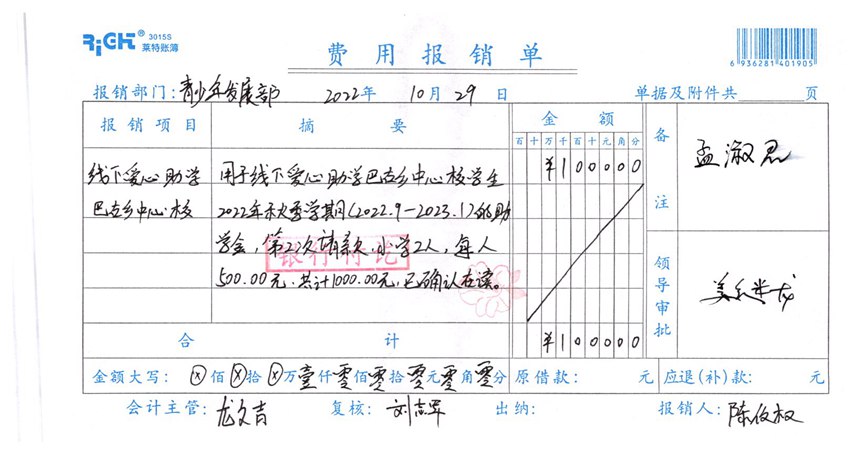 RiGHT® 3015S
莱特账簿
费用报销单
6 936281 401905
报销部门：青少年发展部 2022年 10月 29日 单据及附件共 页
报销项目 摘要 金额 备注 孟淑君
百十万千百十元角分
线下爱心助学 用于线下爱心助学巴吉乡中心校学生 ¥100000
巴吉乡中心校 2022年秋季学期(2022.9-2023.1)的助
学金，第2次请款，小学2人，每人
银行付讫
500.00元，共计1000.00元，已确认在读。
领导审批
合计 ¥100000
金额大写：ⓧ佰ⓧ拾ⓧ万壹仟零佰零拾零元零角零分 原借款： 元 应退(补)款： 元
会计主管：龙文吉 复核：刘志军 出纳： 报销人：陈俊权